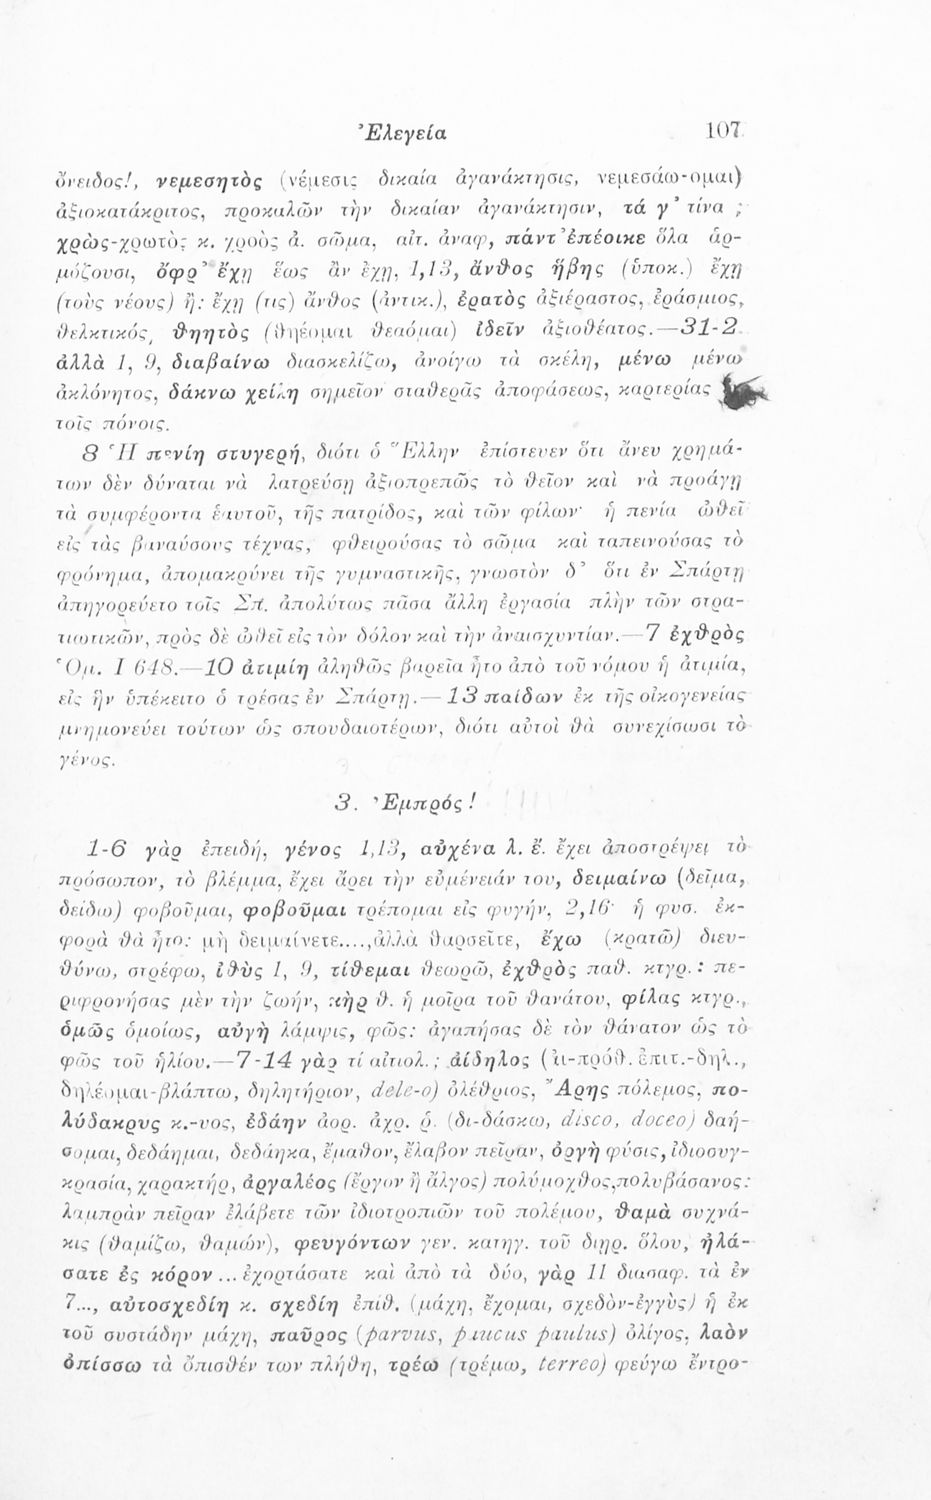 Ἐλεγεία 107
ὄνειδος!, νεμεσητὸς (νέμεσις δικαία ἀγανάκτησις, νεμεσάω-ομαι)
ἀξιοκατάκριτος, προκαλῶν τὴν δικαίαν ἀγανάκτησιν, τά γ’ τίνα ;
χρὼς-χρωτὸς κ. χροὸς ἀ. σῶμα, αἰτ. ἀναφ, πάντ’ἐπέοικε ὅλα ἁρ-
μόζουσι, ὄφρ’ ἔχῃ ἕως ἂν ἔχῃ, 1,13, ἄνθος ἥβης (ὑποκ.) ἔχῃ
(τοὺς νέους) ἢ: ἔχῃ (τις) ἄνθος (ἀντικ.), ἐρατὸς ἀξιέραστος, ἐράσμιος,
θελκτικός, θηητὸς (θηέομαι θεαόμαι) ἰδεῖν ἀξιοθέατος.—31-2
ἀλλὰ 1, 9, διαβαίνω διασκελίζω, ἀνοίγω τὰ σκέλη, μένω μένω
ἀκλόνητος, δάκνω χείλη σημεῖον σταθερᾶς ἀποφάσεως, καρτερίας
τοῖς πόνοις.
8 Ἡ πενίη στυγερή, διότι ὁ Ἕλλην ἐπίστευεν ὅτι ἄνευ χρημά-
των δὲν δύναται νὰ λατρεύσῃ ἀξιοπρεπῶς τὸ θεῖον καὶ νὰ προάγῃ
τὰ συμφέροντα ἑαυτοῦ, τῆς πατρίδος, καὶ τῶν φίλων· ἡ πενία ὠθεῖ
εἰς τὰς βαναύσους τέχνας, φθειρούσας τὸ σῶμα καὶ ταπεινούσας τὸ
φρόνημα, ἀπομακρύνει τῆς γυμναστικῆς, γνωστὸν δ’ ὅτι ἐν Σπάρτῃ
ἀπηγορεύετο τοῖς Σπ. ἀπολύτως πᾶσα ἄλλη ἐργασία πλὴν τῶν στρα-
τιωτικῶν, πρὸς δὲ ὠθεῖ εἰς τὸν δόλον καὶ τὴν ἀναισχυντίαν.—7 ἐχθρὸς
Ὁμ. Ι 648.—10 ἀτιμίη ἀληθῶς βαρεῖα ἦτο ἀπὸ τοῦ νόμου ἡ ἀτιμία,
εἰς ἣν ὑπέκειτο ὁ τρέσας ἐν Σπάρτῃ.—13 παίδων ἐκ τῆς οἰκογενείας
μνημονεύει τούτων ὡς σπουδαιοτέρων, διότι αὐτοὶ θὰ συνεχίσωσι τὸ
γένος.
3. Ἐμπρός!
1-6 γὰρ ἐπειδή, γένος 1,13, αὐχένα λ. ἔ. ἔχει ἀποστρέψει τὸ
πρόσωπον, τὸ βλέμμα, ἔχει ἄρει τὴν εὐμένειάν του, δειμαίνω (δεῖμα,
δείδω) φοβοῦμαι, φοβοῦμαι τρέπομαι εἰς φυγήν, 2,16· ἡ φυσ. ἐκ-
φορὰ θὰ ἦτο: μὴ δειμαίνετε....,ἀλλὰ θαρσεῖτε, ἔχω (κρατῶ) διευ-
θύνω, στρέφω, ἰθὺς 1, 9, τίθεμαι θεωρῶ, ἐχθρὸς παθ. κτγρ.: πε-
ριφρονήσας μὲν τὴν ζωήν, κὴρ θ. ἡ μοῖρα τοῦ θανάτου, φίλας κτγρ.,
ὁμῶς ὁμοίως, αὐγὴ λάμψις, φῶς: ἀγαπήσας δὲ τὸν θάνατον ὡς τὸ
φῶς τοῦ ἡλίου.—7-14 γὰρ τί αἰτιολ.; ἀίδηλος (ἀι-πρόθ. ἐπιτ.-δηλ.,
δηλέομαι-βλάπτω, δηλητήριον, dele-o) ὀλέθριος, Ἄρης πόλεμος, πο-
λύδακρυς κ.-υος, ἐδάην ἀορ. ἀχρ. ῥ. (δι-δάσκω, disco, doceo) δαή-
σομαι, δεδάημαι, δεδάηκα, ἔμαθον, ἔλαβον πεῖραν, ὀργὴ φύσις, ἰδιοσυγ-
κρασία, χαρακτήρ, ἀργαλέος (ἔργον ἢ ἄλγος) πολύμοχθος,πολυβάσανος:
λαμπρὰν πεῖραν ἐλάβετε τῶν ἰδιοτροπιῶν τοῦ πολέμου, θαμὰ συχνά-
κις (θαμίζω, θαμών), φευγόντων γεν. κατηγ. τοῦ διῃρ. ὅλου, ἠλά-
σατε ἐς κόρον... ἐχορτάσατε καὶ ἀπὸ τὰ δύο, γὰρ 11 διασαφ. τὰ ἐν
7..., αὐτοσχεδίη κ. σχεδίη ἐπιθ. (μάχη, ἔχομαι, σχεδὸν-ἐγγὺς) ἡ ἐκ
τοῦ συστάδην μάχη, παῦρος (parvus, paucus paulus) ὀλίγος, λαὸν
ὀπίσσω τὰ ὄπισθέν των πλήθη, τρέω (τρέμω, terreo) φεύγω ἔντρο-